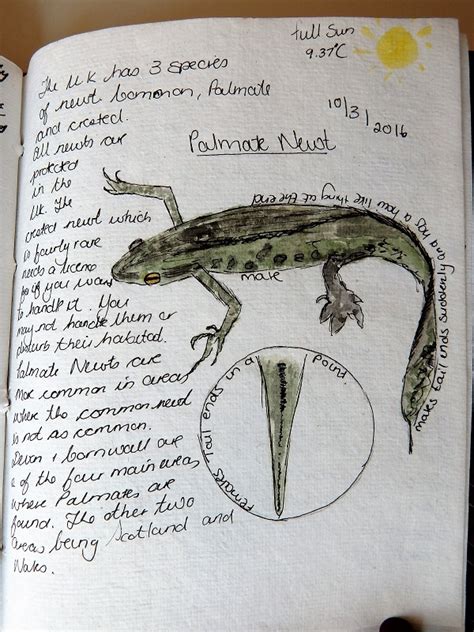 full Sun
9.37°C
10/3/2016
Palmate Newt
The UK has 3 species
of newt common, Palmate
and crested.
All newts are
protected
in the
UK. The
crested newt which
is fairly rare
needs a licence
for if you want
to handle it. You
may not handle them or
disturb their habitad.
Palmate Newts are
mor common in areas
where the common newt
is not as common.
Devon & Cornwall are
2 of the four main areas
where Palmates are
found. The other two
areas being Scotland and
Wales.
male
males tail ends suddenly and has a hair like thing at the end
females tail ends in a point.